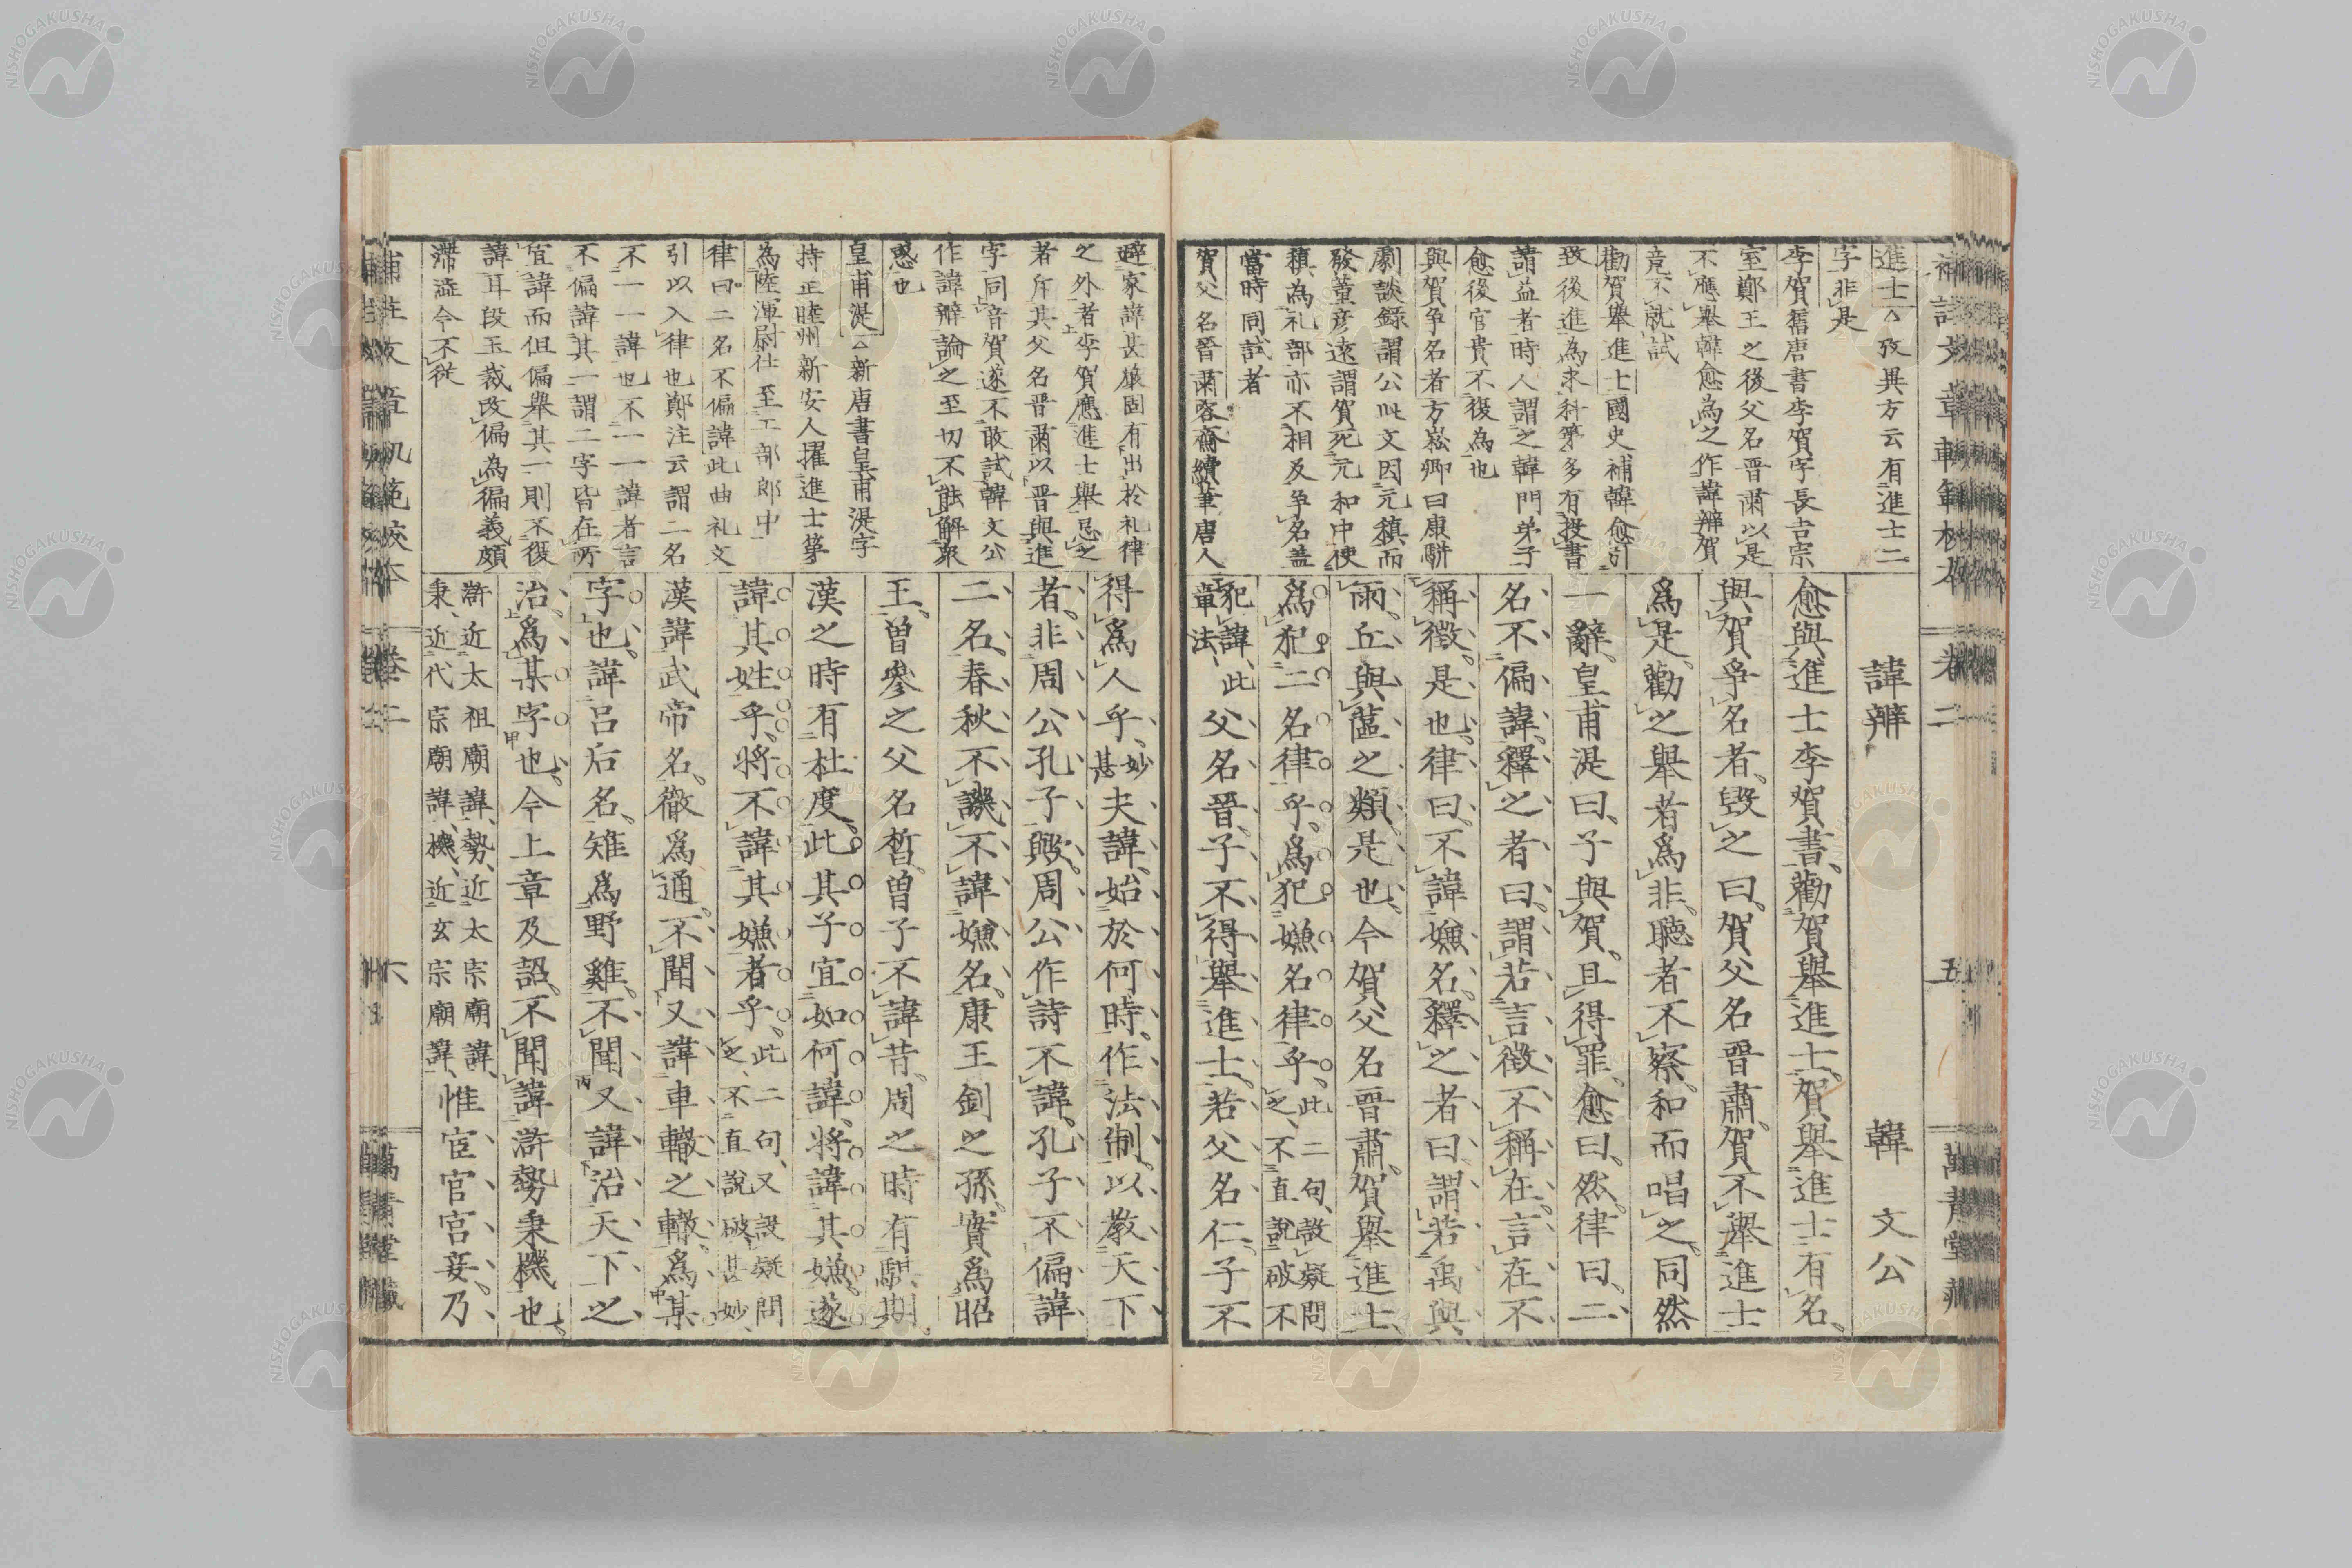 諱辨 韓文公
愈與進士李賀書、勸賀舉進士。賀舉進士有名、
與賀爭名者、毀之曰、賀父名晉肅。賀不舉進士
爲是。勸之舉者爲非。聽者不察。和而唱之。同然
一辭。皇甫湜曰、子與賀、且得罪。愈曰、然。律曰、二
名不偏諱。釋之者曰、謂若言徵不稱在。言在不
稱徵。是也。律曰、不諱嫌名。釋之者曰、謂若禹與
雨。丘與蓲之類。是也。今賀父名晉肅。賀舉進士、
爲犯二名律乎、爲犯嫌名律乎、此二句、設疑問之、不直說破不
犯諱、此章法、父名晉、子不得舉進士。若父名仁。子不
進士△攷異方云有進士二
字非是
李賀舊唐書李賀字長吉宗
室鄭王之後父名晉肅以是
不應舉韓愈爲之作諱辨賀
竟不就試
勸賀舉進士國史補韓愈引
致後進爲求科第多有投書
請益者時人謂之韓門弟子
愈後官貴不復爲也
與賀爭名者方崧卿曰康駢
劇談錄謂公此文因元稹而
發董彥遠謂賀死元和中使
稹為礼部亦不相及爭名蓋
當時同試者
賀父名晉肅容齋續筆唐人
卷二
五
得爲人乎、妙甚夫諱、始於何時。作法制。以教天下
者、非周公孔子歟。周公作詩不諱、孔子不偏諱
二名、春秋不譏不諱嫌名、康王釗之孫。實爲昭
王。曾參之父名晳。曾子不諱昔。周之時有騏期。
漢之時有杜度。此其子宜如何諱、將諱其嫌。遂
諱其姓乎、將不諱其嫌者乎、此二句、又設疑問之、不直說破、甚妙、
漢諱武帝名。徹爲通。不聞又諱車轍之轍。爲某
字也。諱呂后名。雉爲野雞。不聞又諱治天下之
治。爲某字也。今上章及詔。不聞諱滸勢秉機也。
滸近太祖廟諱、勢、近太宗廟諱、秉、近代宗廟諱、機、近玄宗廟諱、惟宦官宮妾。乃
避家諱甚嚴固有出於礼律
之外者李賀應進士舉忌之
者斥其父名晉肅以晉與進
字同音賀遂不敢試韓文公
作諱辨論之至切不能解衆
惑也
皇甫湜△新唐書皇甫湜字
持正睦州新安人擢進士第
為陸渾尉仕至工部郎中
律曰二名不偏諱此曲礼文
引以入律也鄭注云謂二名
不一一諱也不一一諱者言
不偏諱其一謂二字皆在所
宜諱而但偏舉其一則不復
諱耳段玉裁改偏為徧義頗
滞澁今不従
卷二
六